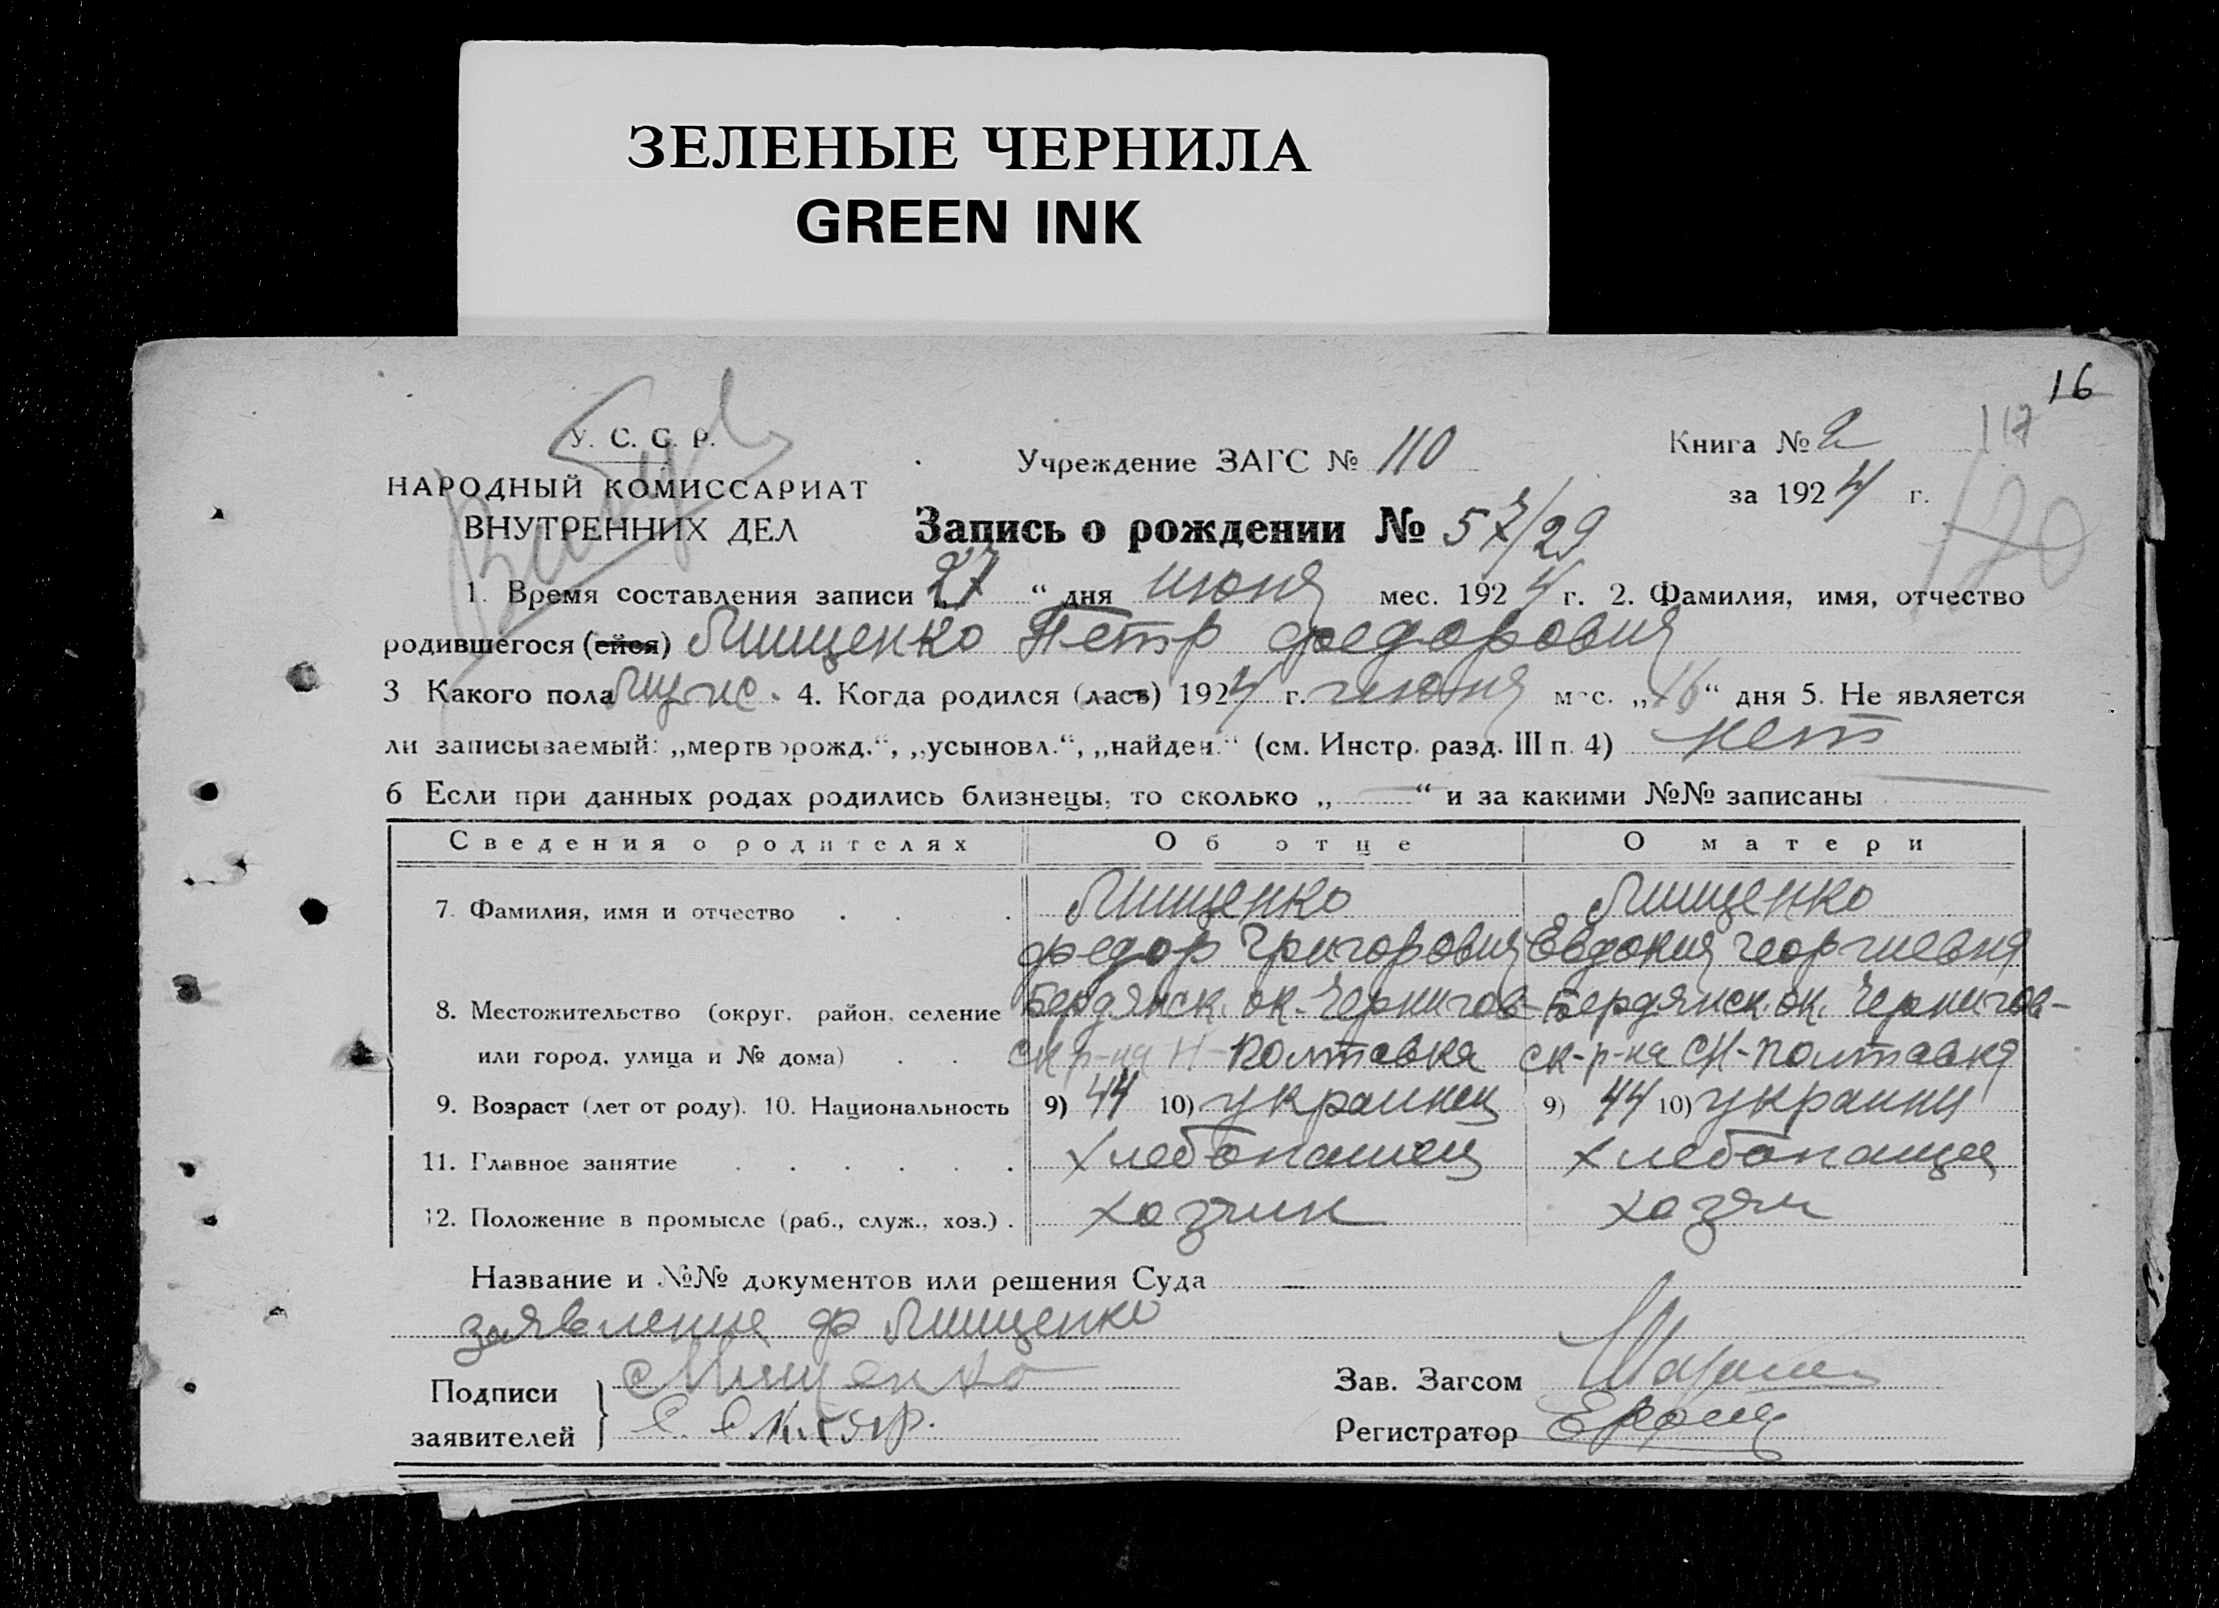 ЗЕЛЕНЫЕ ЧЕРНИЛА
GREEN INK
16
117
120
У. С. С. Р.
НАРОДНЫЙ КОМИССАРИАТ
ВНУТРЕННИХ ДЕЛ
Учреждение ЗАГС № 110
Книга № 2
за 1924 г.
Запись о рождении № 57/29
1. Время составления записи „27“ дня июня мес. 1924 г. 2. Фамилия, имя, отчество
родившегося (ейся) Мищенко Петр Федорович
3 Какого пола Муж. 4. Когда родился (лась) 1924 г. июня мес. „16“ дня 5. Не является
ли записываемый: „мертворожд.“, „усыновл.“, „найден.“ (см. Инстр. разд. III п. 4) нет
6 Если при данных родах родились близнецы, то сколько „ “ и за какими №№ записаны
Сведения о родителях Об отце О матери
7. Фамилия, имя и отчество Мищенко Мищенко
Федор Григорович Евдокия Георгиевна
8. Местожительство (округ, район, селение Бердянск. ок. Чернигов- Бердянск. ок. Чернигов-
или город, улица и № дома) ск р-на Н-Полтавка ск-р-на Н-Полтавка
9. Возраст (лет от роду). 10. Национальность 9) 44 10) украинец 9) 44 10) украинц
11. Главное занятие хлебопашец хлебопашец
12. Положение в промысле (раб., служ., хоз.) хозяин хозяи
Название и №№ документов или решения Суда
заявление Ф Мищенко
Подписи Мищенко
заявителей
Зав. Загсом
Регистратор